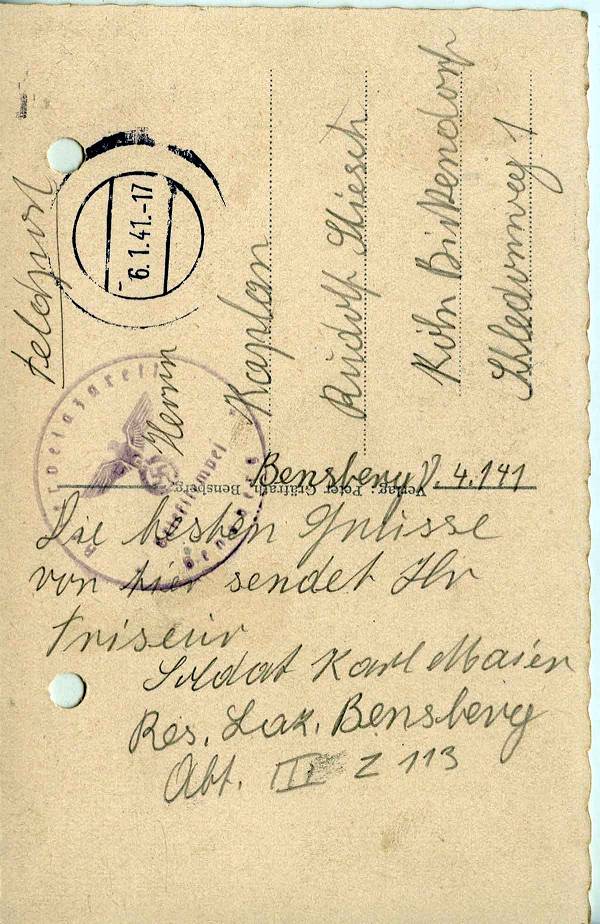 Feldpost
6.1.41.-17
Herrn
Kaplan
Rudolf Stiesch
Köln Bickendorf
Schledornweg 1
Reservelazarett
Briefstempel
Bensberg
Verlag: Peter Gräfrath, Bensberg.
Bensberg, 4.1.41
Die besten Grüsse
von hier sendet Ihr
Friseur
Soldat Karl Maier
Res. Laz. Bensberg
Abt. III Z 113